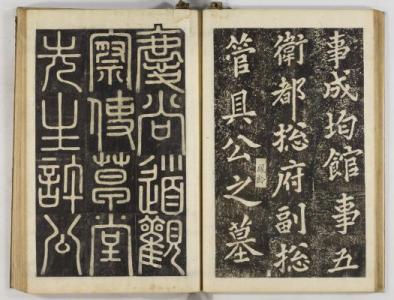 事成均館事五
衛都捴府副捴
管具公之墓
慶尚道觀
察使草堂
先生許公